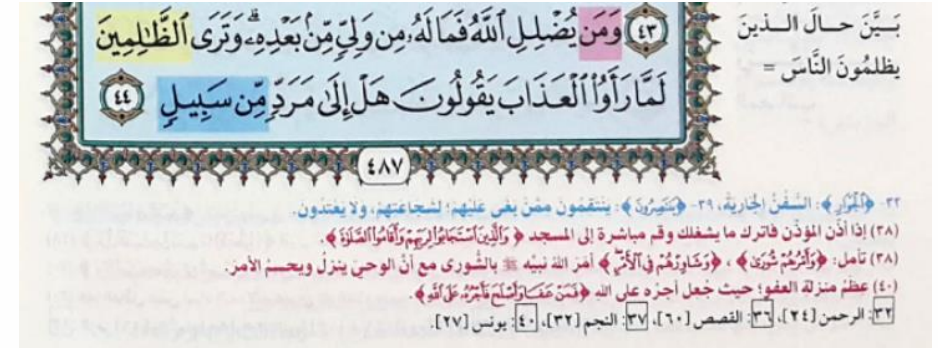 ﴿٤٣﴾ وَمَن يُضْلِلِ ٱللَّهُ فَمَا لَهُۥ مِن وَلِىٍّ مِّنۢ بَعْدِهِۦ ۗ وَتَرَى ٱلظَّـٰلِمِينَ
لَمَّا رَأَوُا۟ ٱلْعَذَابَ يَقُولُونَ هَلْ إِلَىٰ مَرَدٍّ مِّن سَبِيلٍ ﴿٤٤﴾
٤٨٧
بَيَّنَ حالَ الـذينَ
يظلمُونَ النَّاسَ =
٣٢- ﴿ٱلْجَوَارِ﴾: السُّفُنُ الجَارِيَةُ، ٣٩- ﴿يَنتَصِرُونَ﴾: يَنتَقِمُونَ مِمَّنْ بَغَى عَلَيْهِمْ؛ لِشَجَاعَتِهِمْ، وَلَا يَعْتَدُونَ.
(٣٨) إذا أذَّن المؤذن فاترك ما يشغلك وقم مباشرة إلى المسجد ﴿وَٱلَّذِينَ ٱسْتَجَابُوا۟ لِرَبِّهِمْ وَأَقَامُوا۟ ٱلصَّلَوٰةَ﴾.
(٣٨) تأمل: ﴿وَأَمْرُهُمْ شُورَىٰ﴾، ﴿وَشَاوِرْهُمْ فِى ٱلْأَمْرِ﴾ أمَرَ الله نبيَّه ﷺ بالشُّورى مع أنَّ الوحيَ ينزلُ ويحسمُ الأمرَ.
(٤٠) عظمُ منزلة العفو؛ حيث جُعل أجرُه على الله ﴿فَمَنْ عَفَا وَأَصْلَحَ فَأَجْرُهُۥ عَلَى ٱللَّهِ﴾.
٣٢: الرحمن [٢٤]، ٣٦: القصص [٦٠]، ٣٧: النجم [٣٢]، ٤٠: يونس [٢٧]